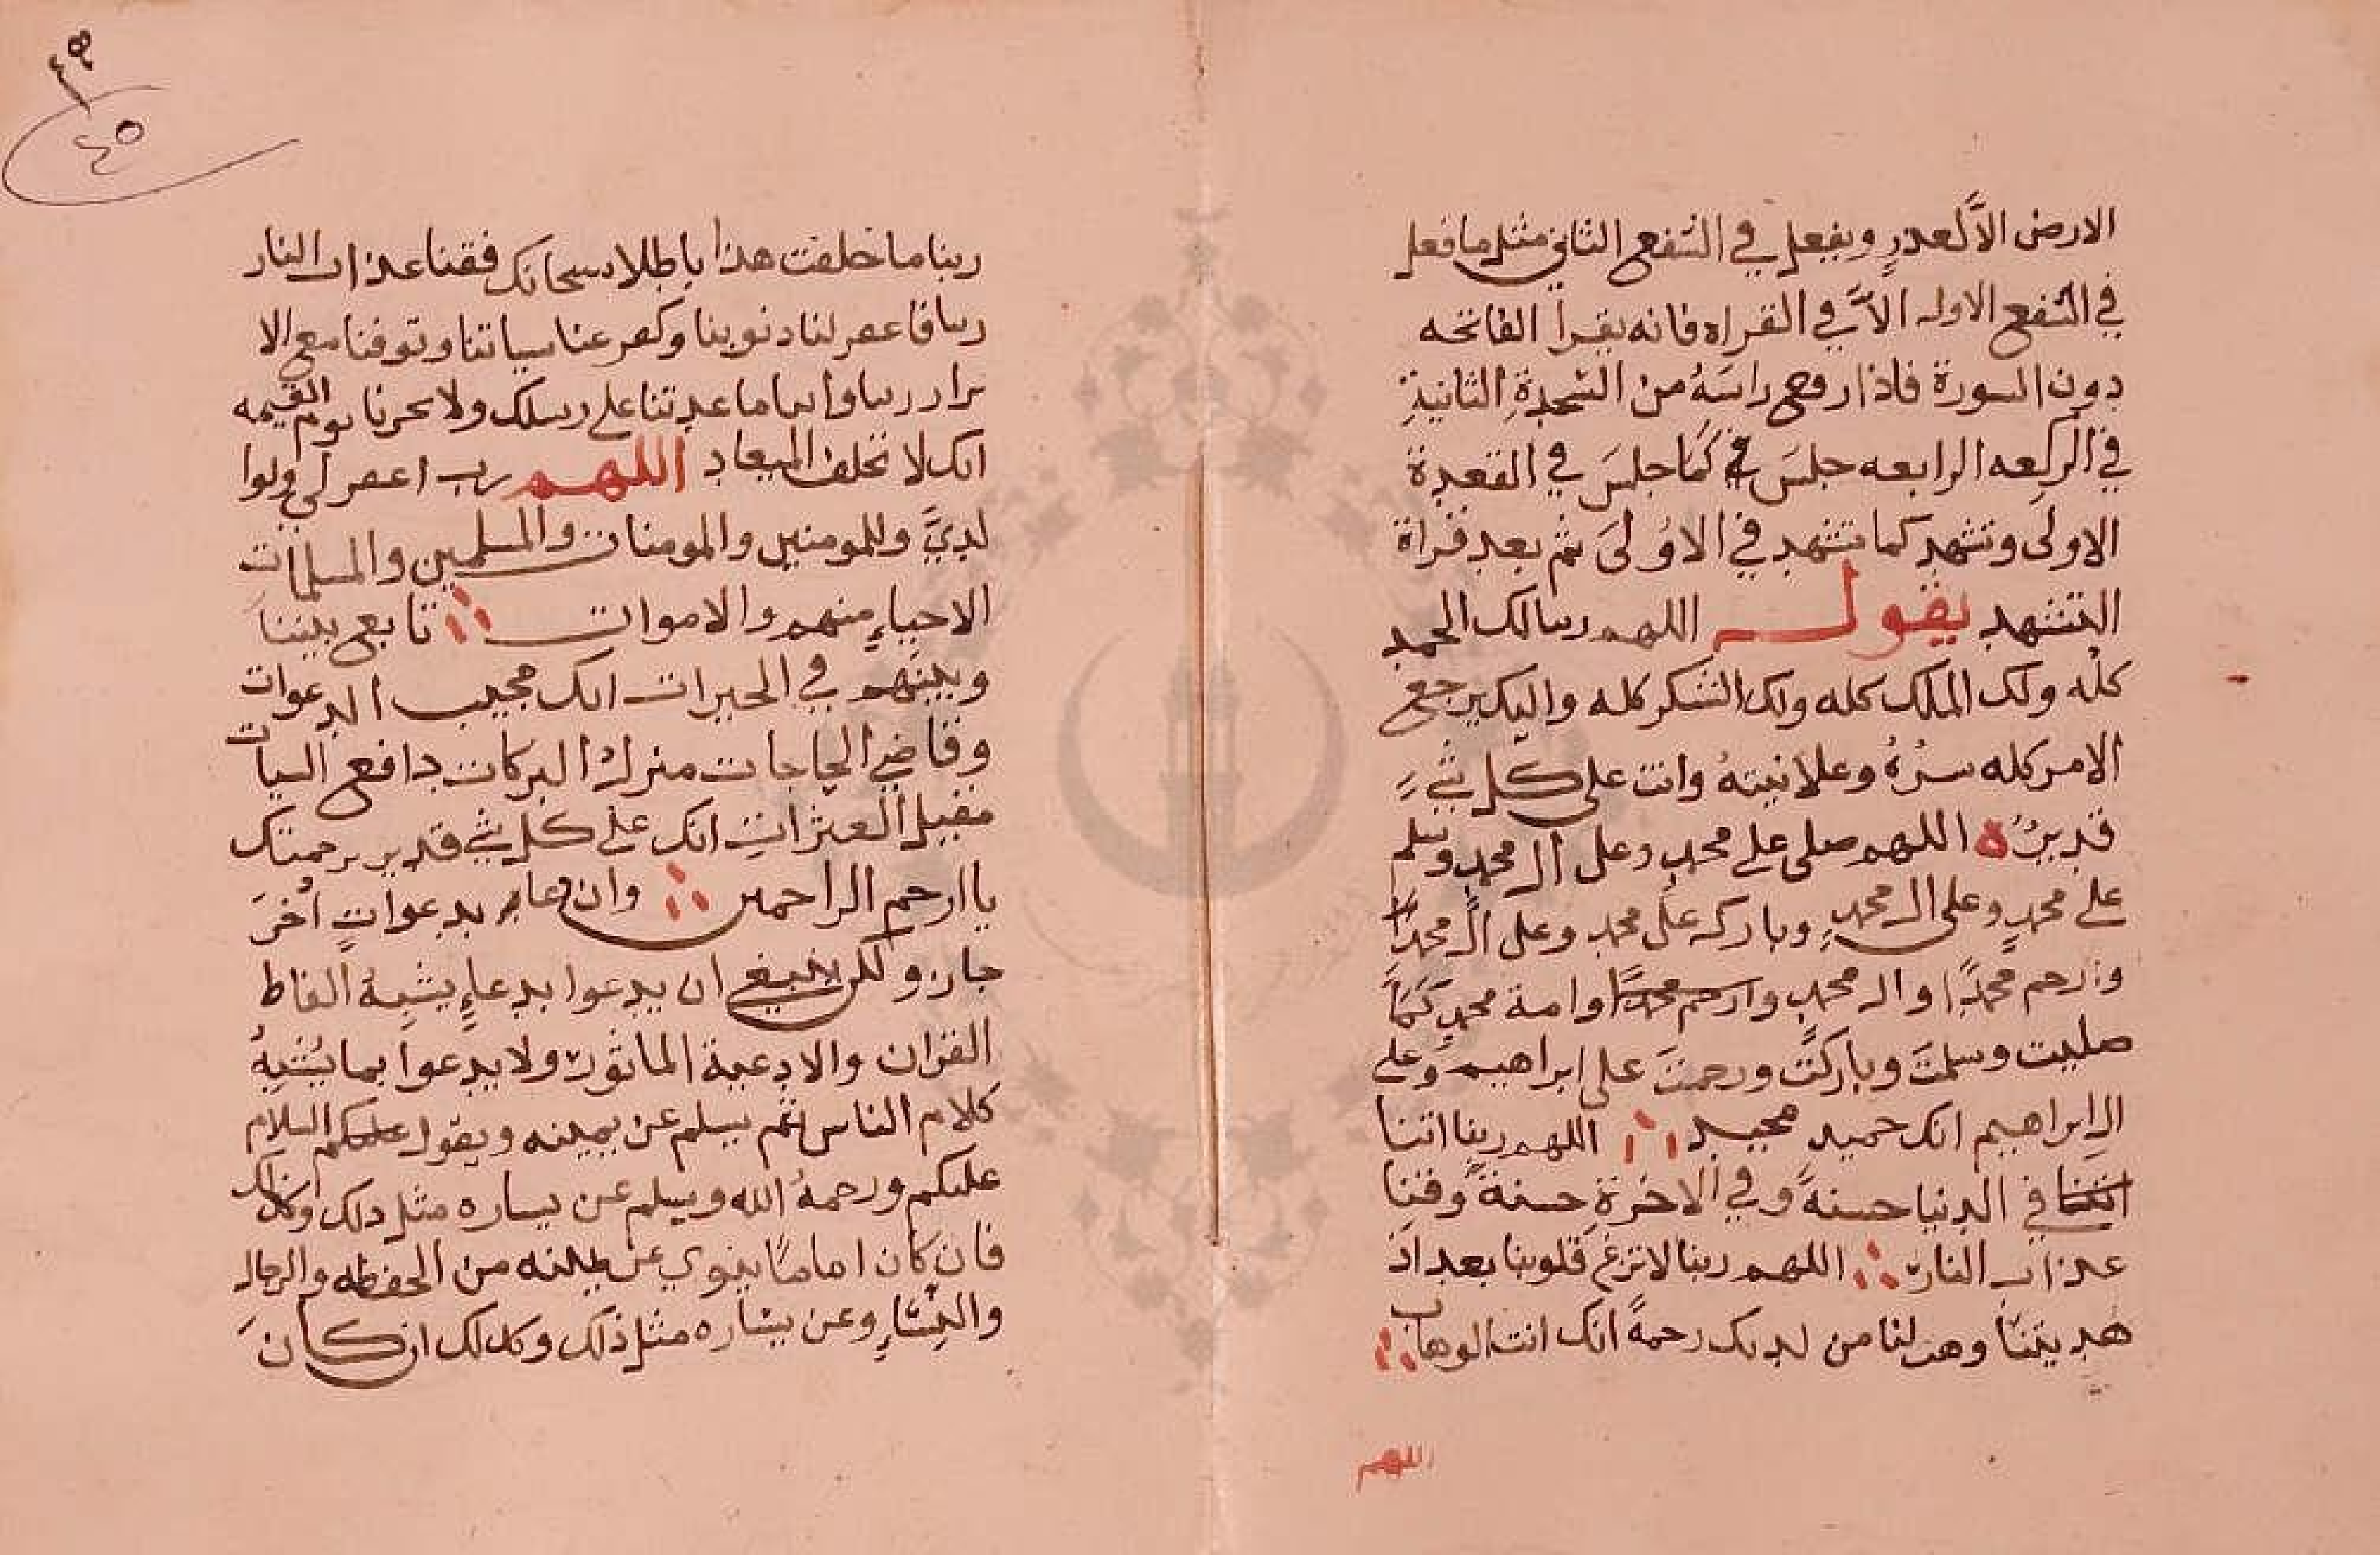 الارض الَّا لعذرٍ ويفعل في الشفع الثاني مثل ما فعل
في الشفع الاول الَّا في القراه فانه يقرأ الفاتحه
دون السورة فاذا رفع راسَهُ من السَّجدةِ الثانيةِ
في الركعه الرابعه جلسَ في كَمَا جلسَ في القعدة
الاولى وتشهد كما تشهد في الاوُلىَ ثم بعد قراة
التشهد يقول اللهم ربنا لك الحمد
كلُه ولك الملك كله ولك الشكر كله واليك يرجع
الامر كله سرُهُ وعلانيتهُ وانت على كل شيءٍ
قديرٌ ه اللهم صلى على محمدٍ وعلى ال محمدٍ وسلم
على محمدٍ وعلى ال محمدٍ وبارك على محمد وعلى ال محمد
وارحم محمدًا وال محمدٍ وارحم محمدًا وامة محمدٍ كَمَا
صليت وسلمتَ وباركتَ ورحمتَ على ابراهيم وعلى
ال ابراهيم انك حميد مجيد ∴ اللهم ربنا اتنا
اتنا في الدنيا حسنهً وفي الاخرةِ حسنةً وقنا
عذاب النار ∴ اللهم ربنا لا تزغ قلوبنا بعد اذ
هديتنا وهب لنا من لدنك رحمةً انك انت الوهاب ∴
اللهم
٤٩
٤٥
ربنا ما خلقت هذا باطلا سبحانك فقنا عذاب النار
ربنا فاغفر لنا ذنوبنا وكفر عنا سياتنا وتوفنا مع الا
برار ربنا واتنا ما وعدتنا على رسلك ولا تخزنا يوم القيمه
انك لا تخلف الميعاد اللهم رب اغفر لي ولوا
لديَّ وللمومنين والمومنات والمسلمين والمسلمات
الاحياءِ منهم والاموات ∴ تابع بيننا
وبينهم في الخيرات انك مجيب الدعوات
وقاضي الحاجات منزل البركات دافع السيات
مقيل العثراتِ انك على كل شي قدير برحمتك
يا ارحم الراحمين ∴ وان دعا بدعواتٍ اُخرَ
جاز ولكن ينبغي ان يدعوا بدعاءٍ يشبِهُ الفاظ
القران والادعية الماثورة ولا يدعوا بما يُشبِهُ
كلام الناس ثم يسلم عن يمينه ويقول عليكم السلام
عليكم ورحمةُ الله ويسلم عن يساره مثل ذلك وكذلك
فان كان امامًا ينوي عن يمينه من الحفظه والرجال
والنساءِ وعن يساره مثل ذلك وكذلك ان كانَ